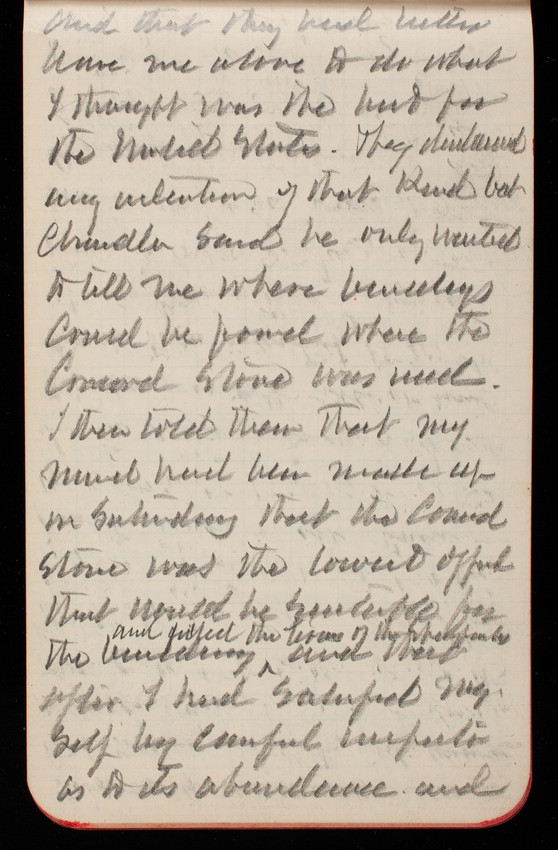 and that they had better
have me alone to do what
I thought was the best for
the United States. They disclaimed
any intention of that kind but
Chandler said he only wanted
to tell me where buildings
could be found where the
Concord Stone was used.
I then told them that my
mind had been made up
on Saturday that the Concord
Stone was the lowest offer
that would be suitable for
and filled the terms of the
the building ^ and that
after I had satisfied my
self by careful
as to its abundance and